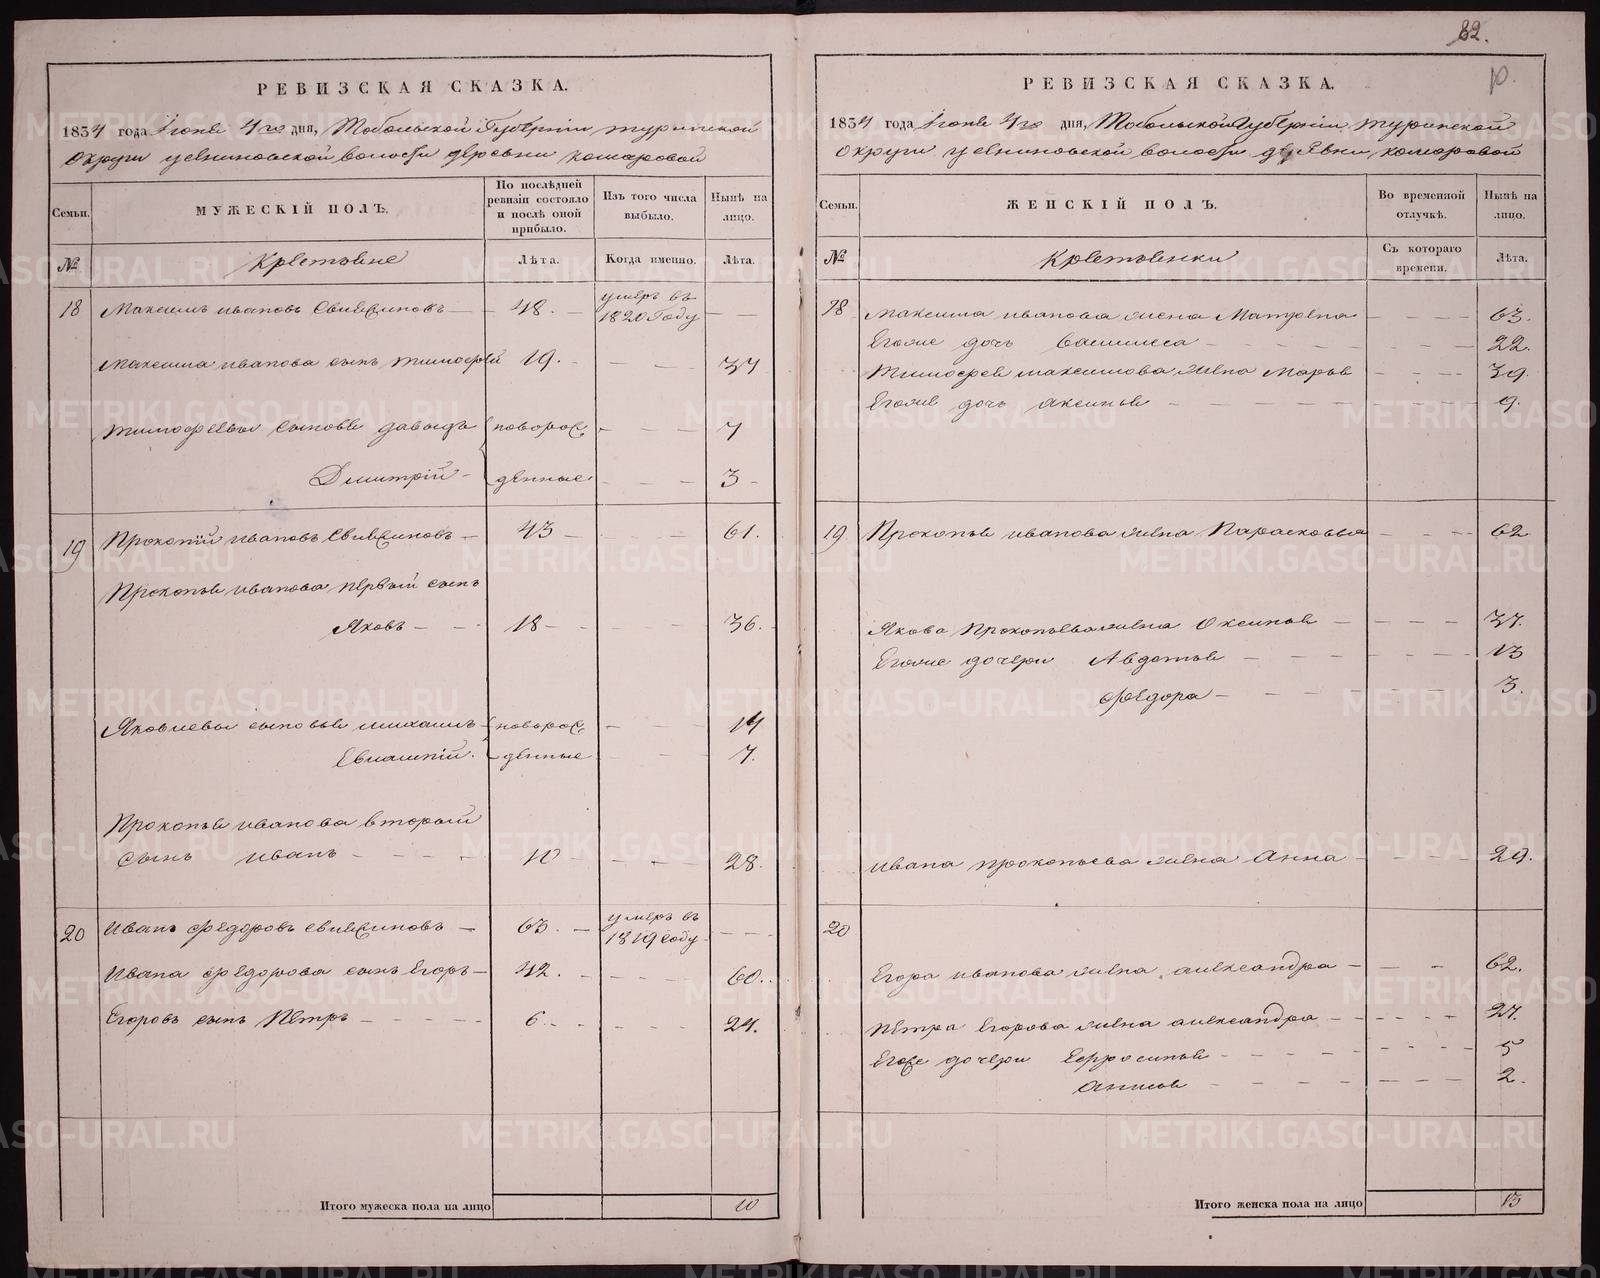 82.
10.
РЕВИЗСКАЯ СКАЗКА.
1834 года Іюня 4го дня, Тобольской Губерніи туринской
Округи усениновской волости деревни комаровой
Семьи.
МУЖЕСКІЙ ПОЛЪ.
По послѣдней ревизіи состояло и послѣ оной прибыло.
Изъ того числа выбыло.
Нынѣ на лицо.
№
Крестьяне
Лѣта.
Когда именно.
Лѣта.
18 Максимъ ивановъ Свищиновъ 48. умеръ въ 1820 Году
Максима иванова сынъ тимофей 19. 37
тимофеевы сыновья давыдъ новорож 7
Дмитрій денные 3
19 Прокопій ивановъ Свищиновъ 43 61.
Прокопья иванова первый сынъ
Яковъ 18 36.
Яковлевы сыновья михаилъ новорож 14
Евлампій. денные 7.
Прокопья иванова второй
сынъ иванъ 10 28.
20 иванъ федоровъ свищиновъ 63. умеръ въ 1819 году
ивана федорова сынъ Егоръ 42. 60.
Егоровъ сынъ Петръ 6. 24.
Итого мужеска пола на лицо 10
РЕВИЗСКАЯ СКАЗКА.
1834 года Іюня 4го дня, Тобольской Губерніи, туринской
Округи усениновской волости деревни, комаровой
Семьи.
ЖЕНСКІЙ ПОЛЪ.
Во временной отлучкѣ.
Нынѣ на лицо.
№
Крестьянки
Съ котораго времени.
Лѣта.
18 максима иванова жена Матрена 63.
Егоже дочь василиса 22.
тимофея максимова жена марья 39.
Егоже дочь аксинья 9.
19 Прокопья иванова жена Парасковья 62
Якова Прокопьева жена Оксинья 37.
Егоже дочери Авдотья 13
федора 3.
ивана прокопьева жена Анна 29.
20
Егора иванова жена александра 62.
Петра Егорова жена александра 27.
Егоже дочери Ефросинья 5
анисья 2.
Итого женска пола на лицо 13